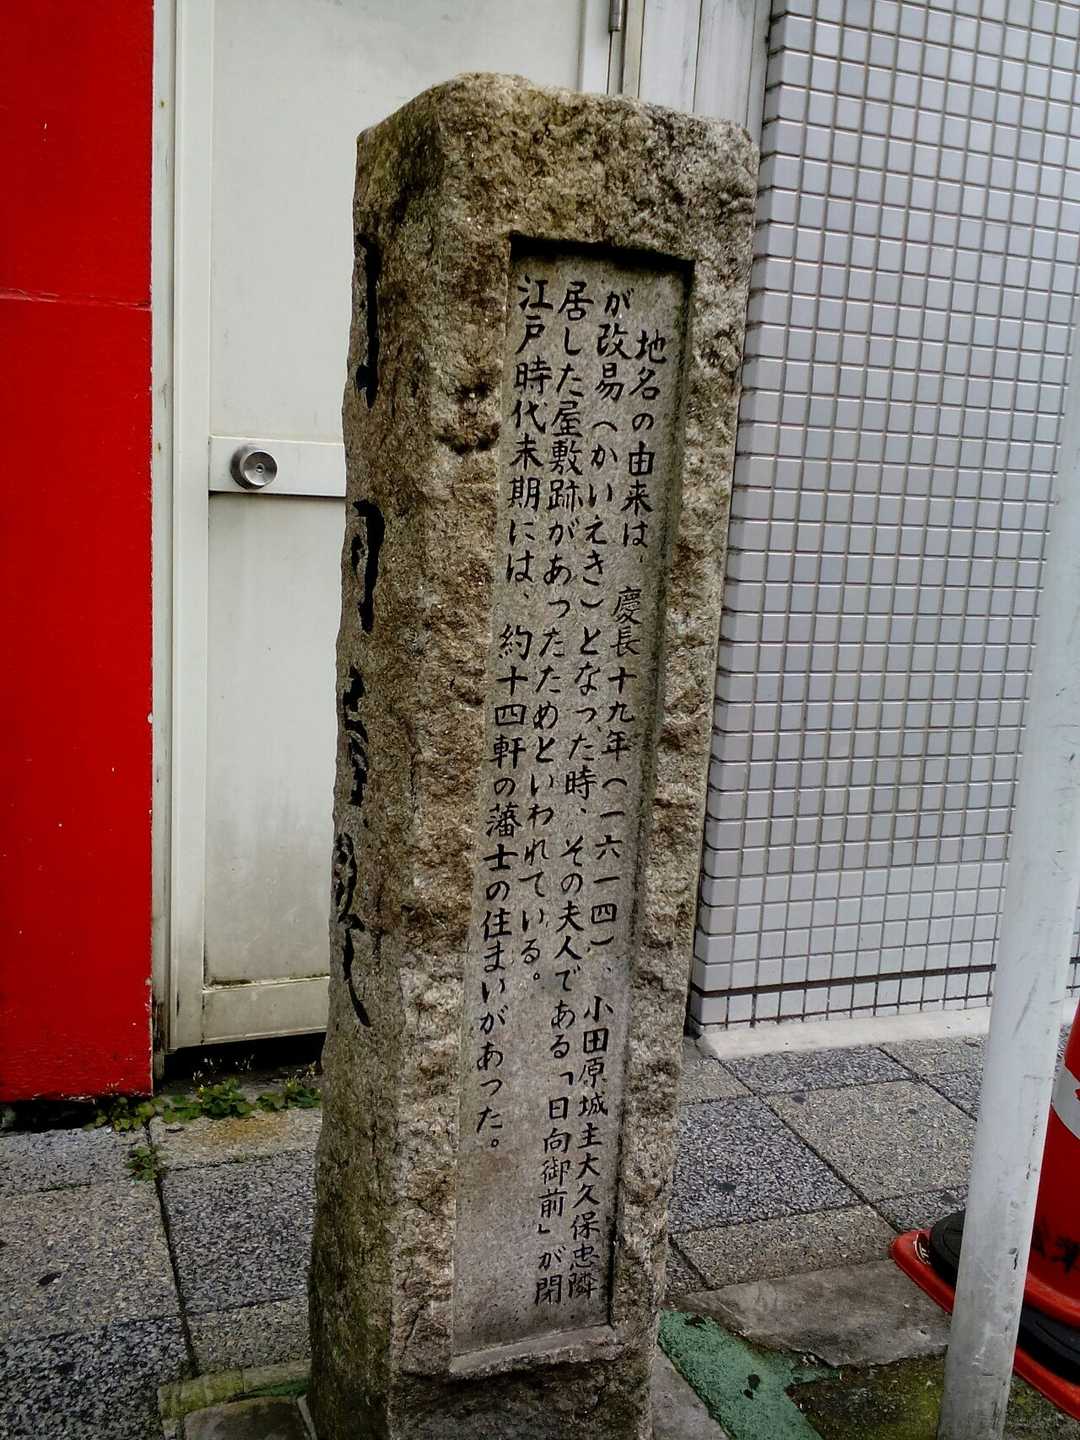 地名の由来は、慶長十九年（一六一四）、小田原城主大久保忠隣
が改易（かいえき）となった時、その夫人である「日向御前」が閉
居した屋敷跡があったためといわれている。
江戸時代末期には、約十四軒の藩士の住まいがあった。